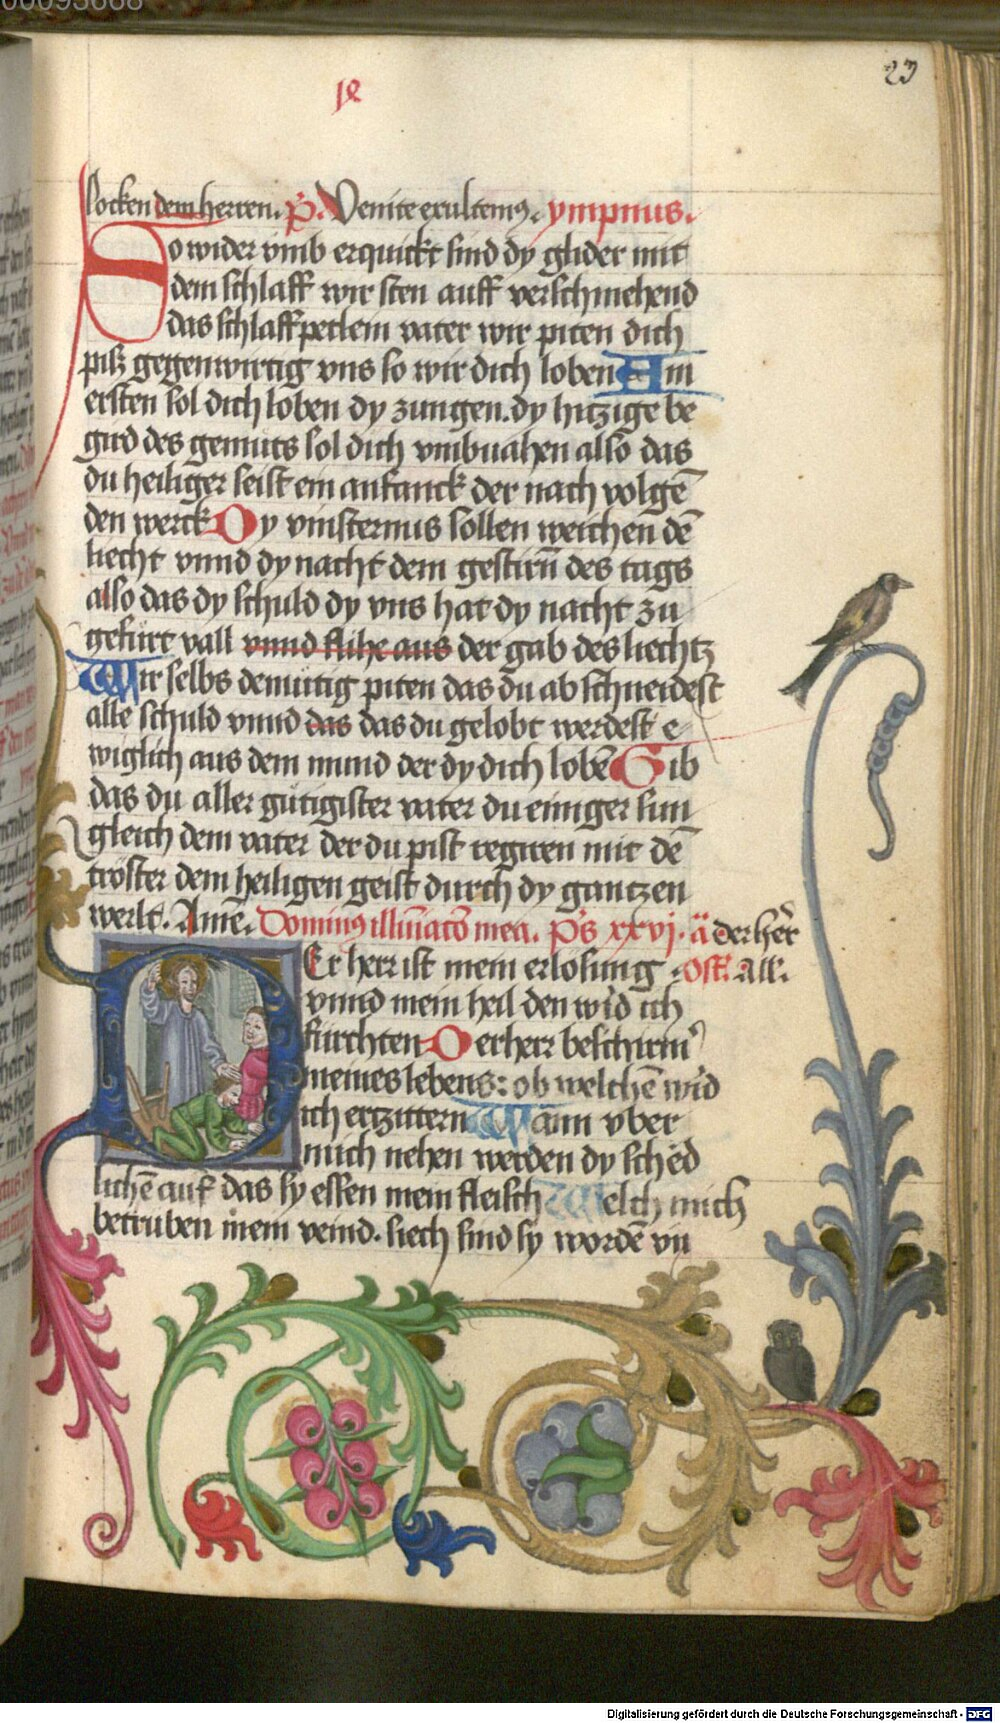 00095668
23
locken dem herren. P̄. Venite exultemꝰ. ympnus.
So wider vmb erquickt sind dy glider mit
dem schlaff wir sten auff verschmehend
das schlaffpetlein vater wir piten dich
pisz gegenwirtig vns so wir dich loben Am
ersten sol dich loben dy zungen. dy hitzige be
gird des gemuts sol dich vmbuahen also das
du heiliger seist ein anfanck der nach volgē
den werck Dy vinsternus sollen weichen dē
liecht vnnd dy nacht dem gestirn̄ des tags
also das dy schuld dy vns hat dy nacht zu
gefürt vall vnnd flihe aus der gab des liechtz
Wir selbs demütig piten das du ab schneidest
alle schuld vnnd das das du gelobt werdest e
wiglich aus dem mund der dy dich lobē Gib
das du aller gütigister vater du einiger sun
gleich dem vater der du pist regiren mit dē
tröster dem heiligen geist durch dy gantzen
werlt. Amē. Dominꝰ illūīatō mea. Ps xxvj. ā der her̄
Er herr ist mein erlosung. Ost. All.
vnnd mein heil den wid ich
furchten Der herr beschirmꝰ
meines lebens: ob welchē wid
ich erczittern Wann vber
mich nehen werden dy sched
lichē auf das sy essen mein fleisch Welch mich
betruben mein veind. siech sind sy wordē vn̄
Digitalisierung gefördert durch die Deutsche Forschungsgemeinschaft - DFG